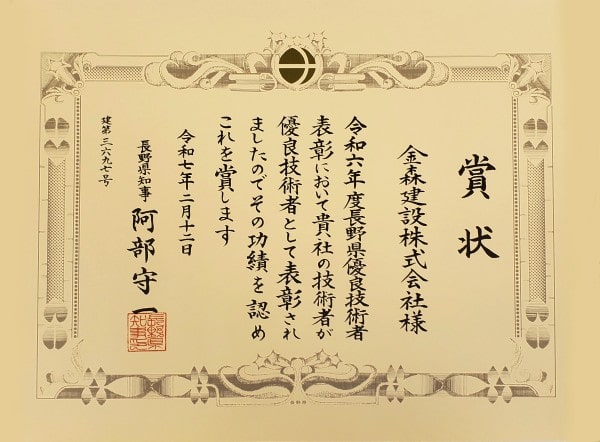 賞状
金森建設株式会社様
令和六年度長野県優良技術者
表彰において貴社の技術者が
優良技術者として表彰され
ましたのでその功績を認め
これを賞します
令和七年二月十二日
長野県知事 阿部守一
長野県知事印
建第三六九七号